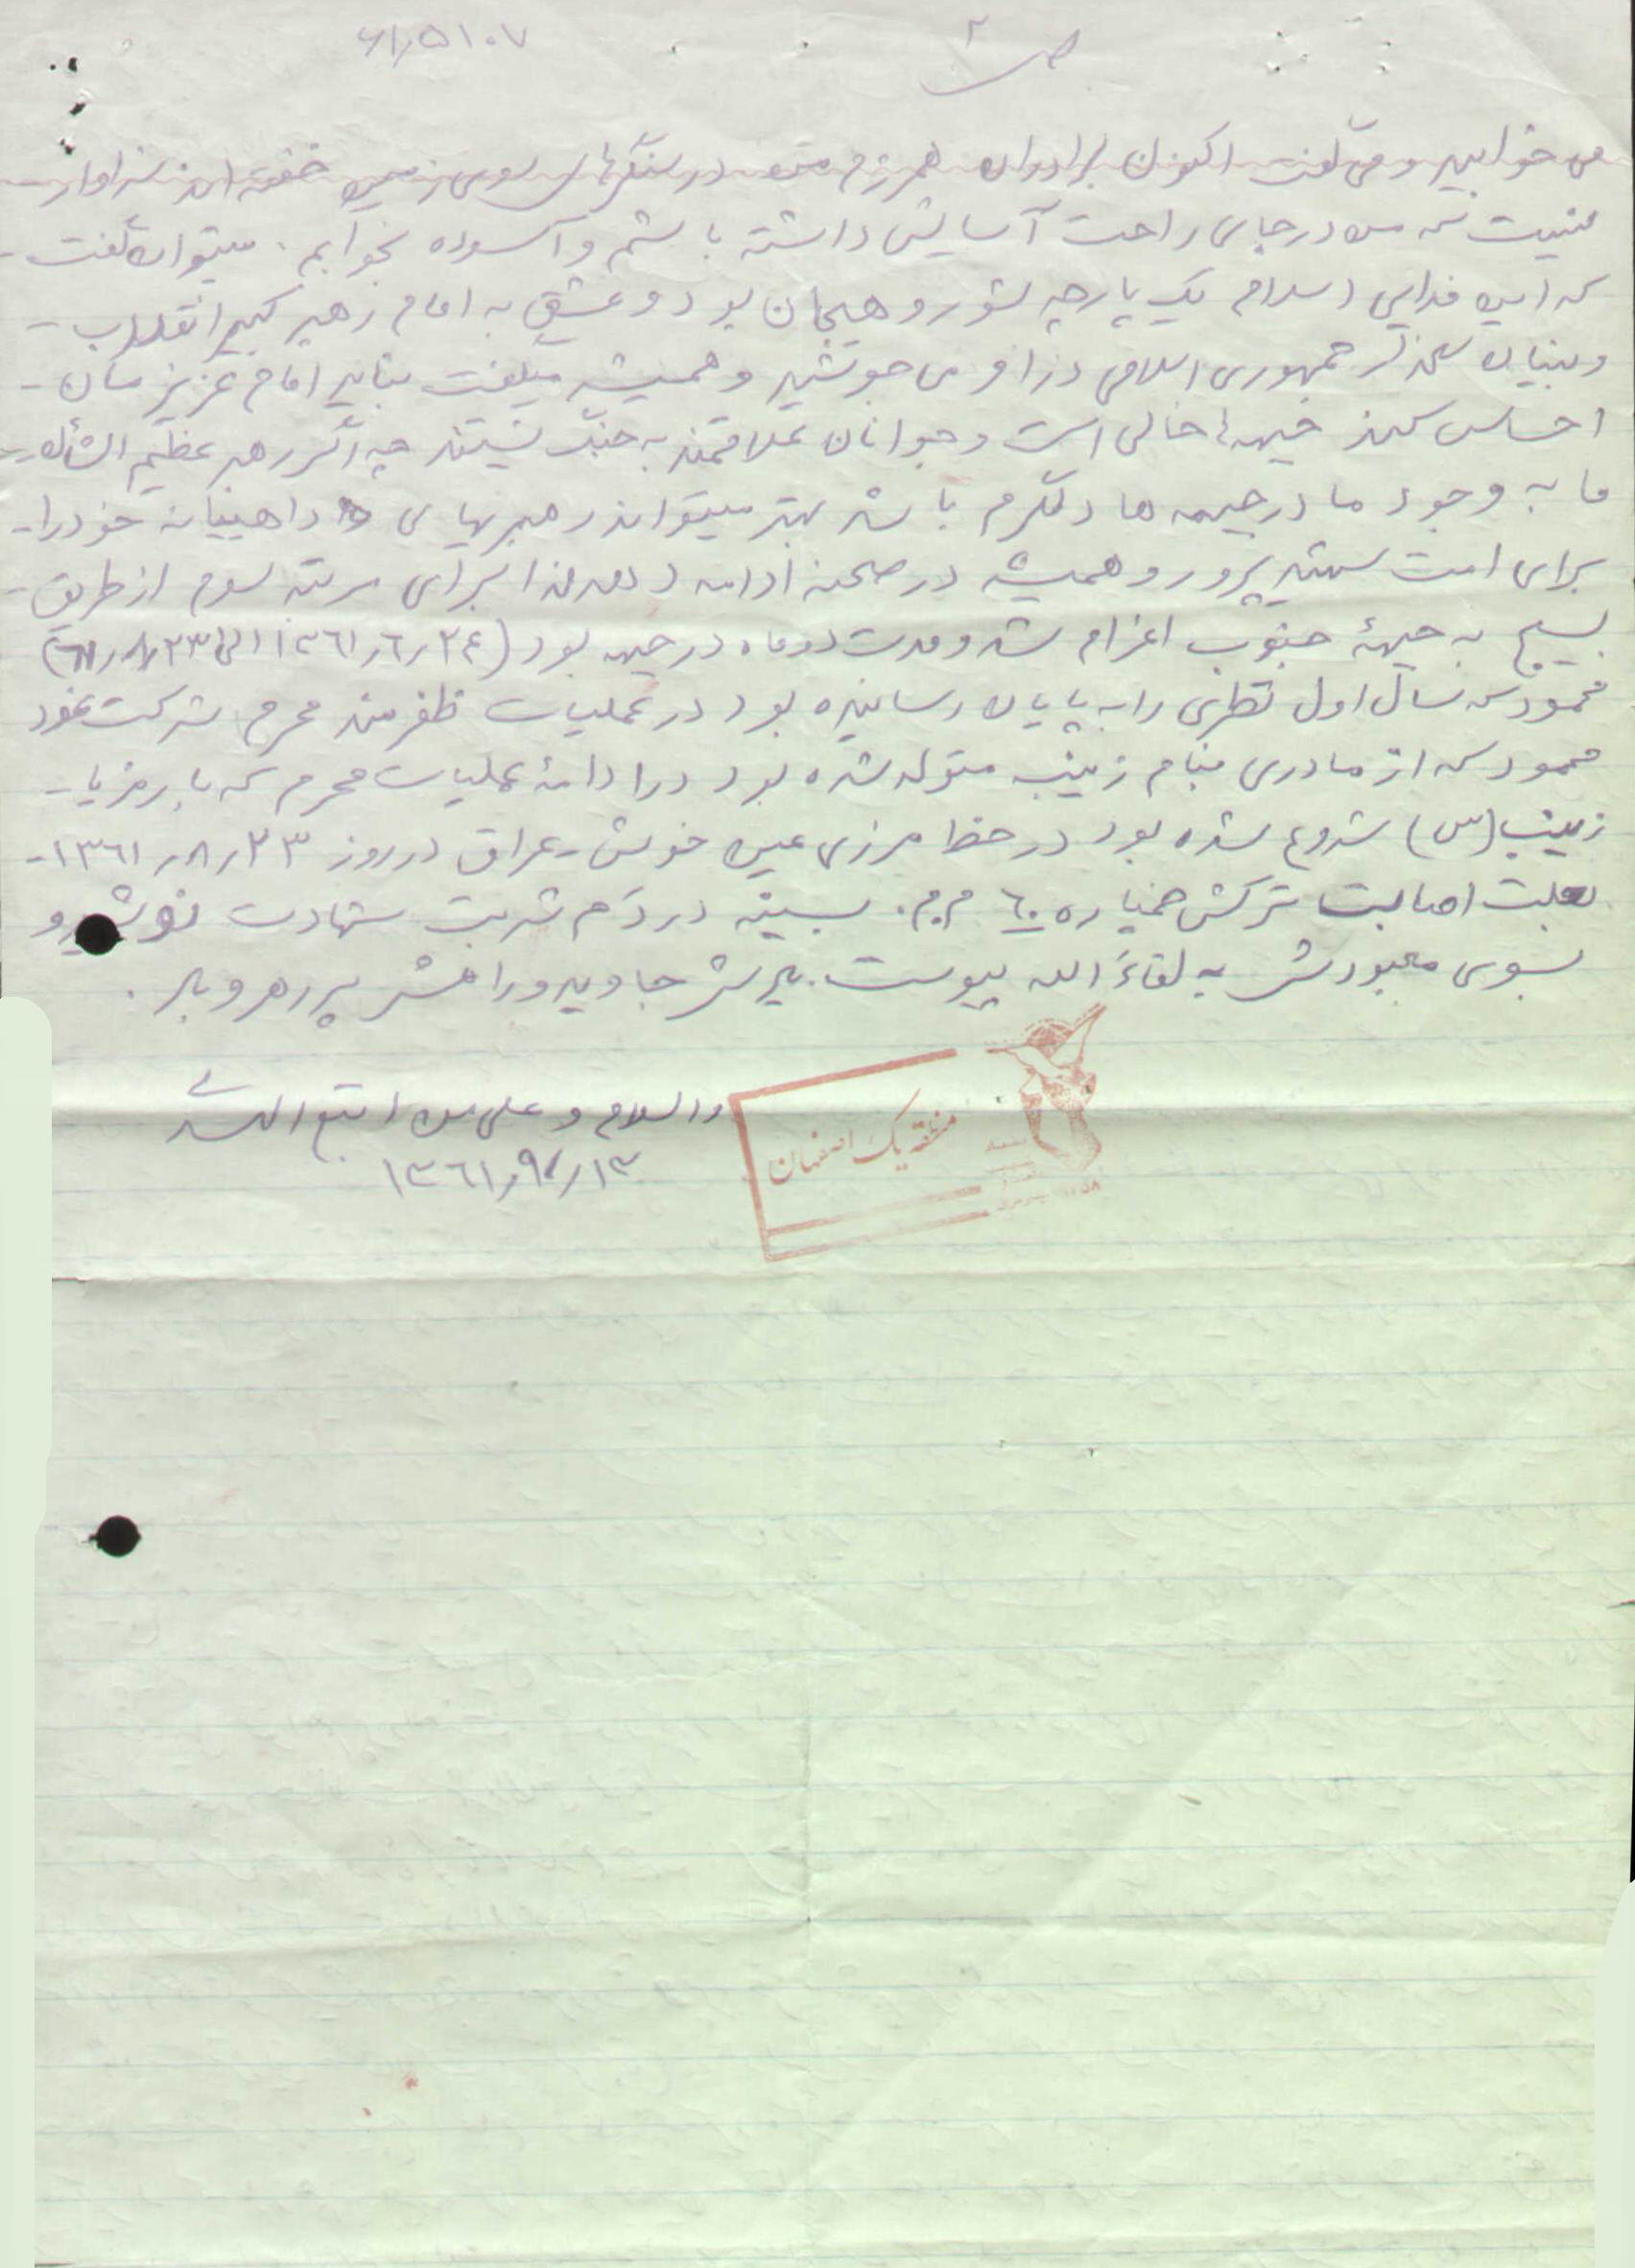 ص ۲
۶۱٫۵۱۰۷
می خوابید و می گفت اکنون برادران همرزم من در سنگرهای سوی زمین خفته اند سزاوار -
نیست که من در جای راحت آسایش داشته باشم و آسوده بخوابم. میتوان گفت -
که این فدایی اسلام یک پارچه شور و هیجان بود و عشق به امام رهبر کبیر انقلاب -
و بنیان گذار جمهوری اسلامی در او می جوشید و همیشه میگفت نباید امام عزیزمان -
احساس کند جبهه ها خالی است و جوانان علاقمند به جنگ نیستند چه اگر رهبر عظیم الشأن -
ما به وجود ما در جبهه ها دلگرم باشد بهتر میتواند رهبریهای داهییانه خود را -
برای امت شهید پرور و همیشه در صحنه ادامه دهد لذا برای مرتبه سوم از طریق -
بسیج به جبهۀ جنوب اعزام شد و مدت دو ماه در جبهه بود (۲۴ر۶ر۱۳۶۱ الی ۲۳ر۸ر۶۱)
محمود که سال اول نظری را به پایان رسانیده بود در عملیات ظفرمند محرم شرکت نمود
محمود که از مادری بنام زینب متولد شده بود در ادامۀ عملیات محرم که با رمز یا -
زینب (س) شروع شده بود در خط مرزی عین خوش - عراق در روز ۲۳ر۸ر۱۳۶۱ -
بعلت اصابت ترکش خمپاره ۶۰ م.م. بسینه در دَم شربت شهادت نوشید و
بسوی معبودش به لقاءَ الله پیوست. یادش جاوید و راهش پر رهرو باد.
والسلام و علی من اتبع الهدی
۱۳ر۹ر۱۳۶۱
منطقه یک اصفهان